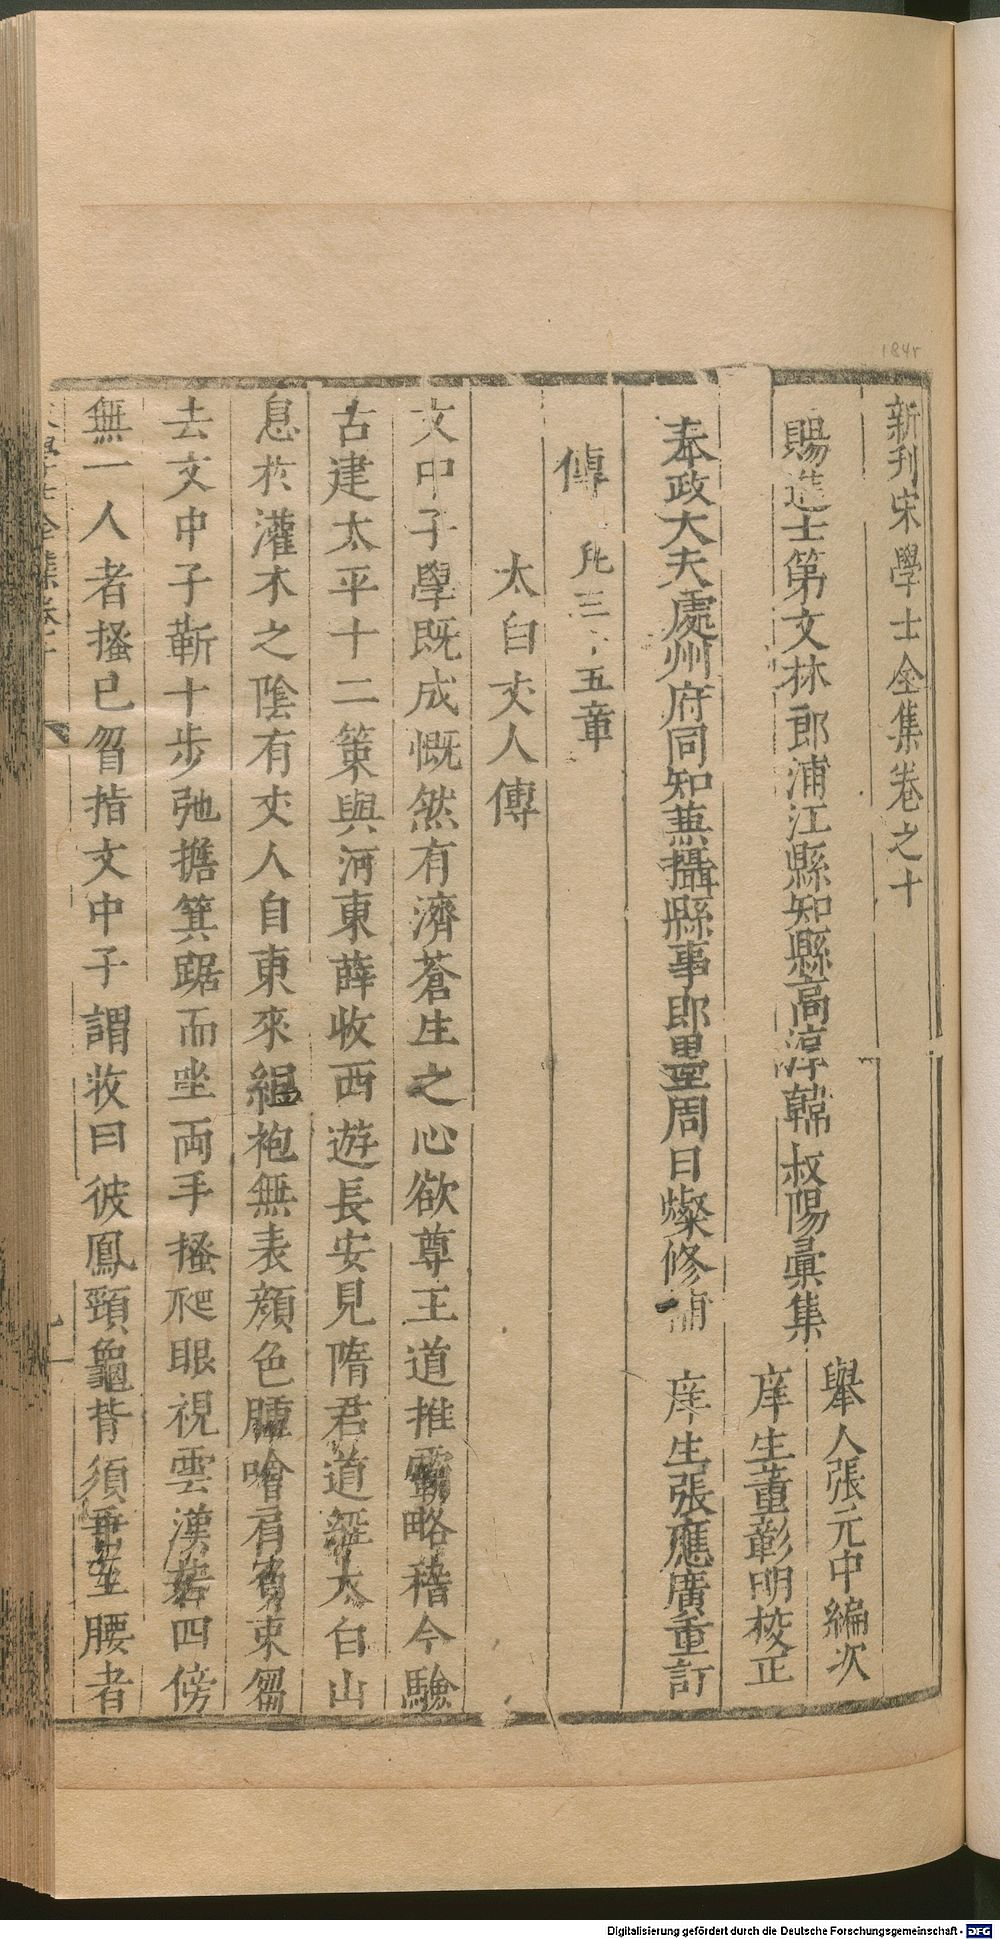 新刊宋學士全集卷之十
賜進士第文林郎浦江縣知縣高淳韓叔陽彙集
舉人張元中編次
庠生董彰明校正
奉政大夫處州府同知兼攝縣事即墨周日燦修補
庠生張應廣重訂
傳 凡三十五章
太白丈人傳
文中子學既成慨然有濟蒼生之心欲尊王道推霸略稽今驗
古建太平十二策與河東薛收西遊長安見隋君道經太白山
息於灌木之陰有丈人自東來縕袍無表顏色腫噲肩負束芻
去文中子蘄十步弛擔箕踞而坐兩手搔爬眼視雲漢若四傍
無一人者搔已忽指文中子謂收曰彼鳳頸龜背須垂至腰者
184r
Digitalisierung gefördert durch die Deutsche Forschungsgemeinschaft - DFG